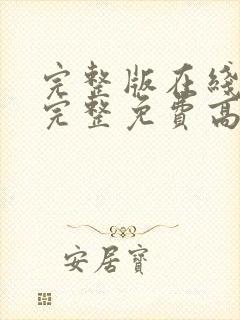 完整版在线
完整免費高
安居寶